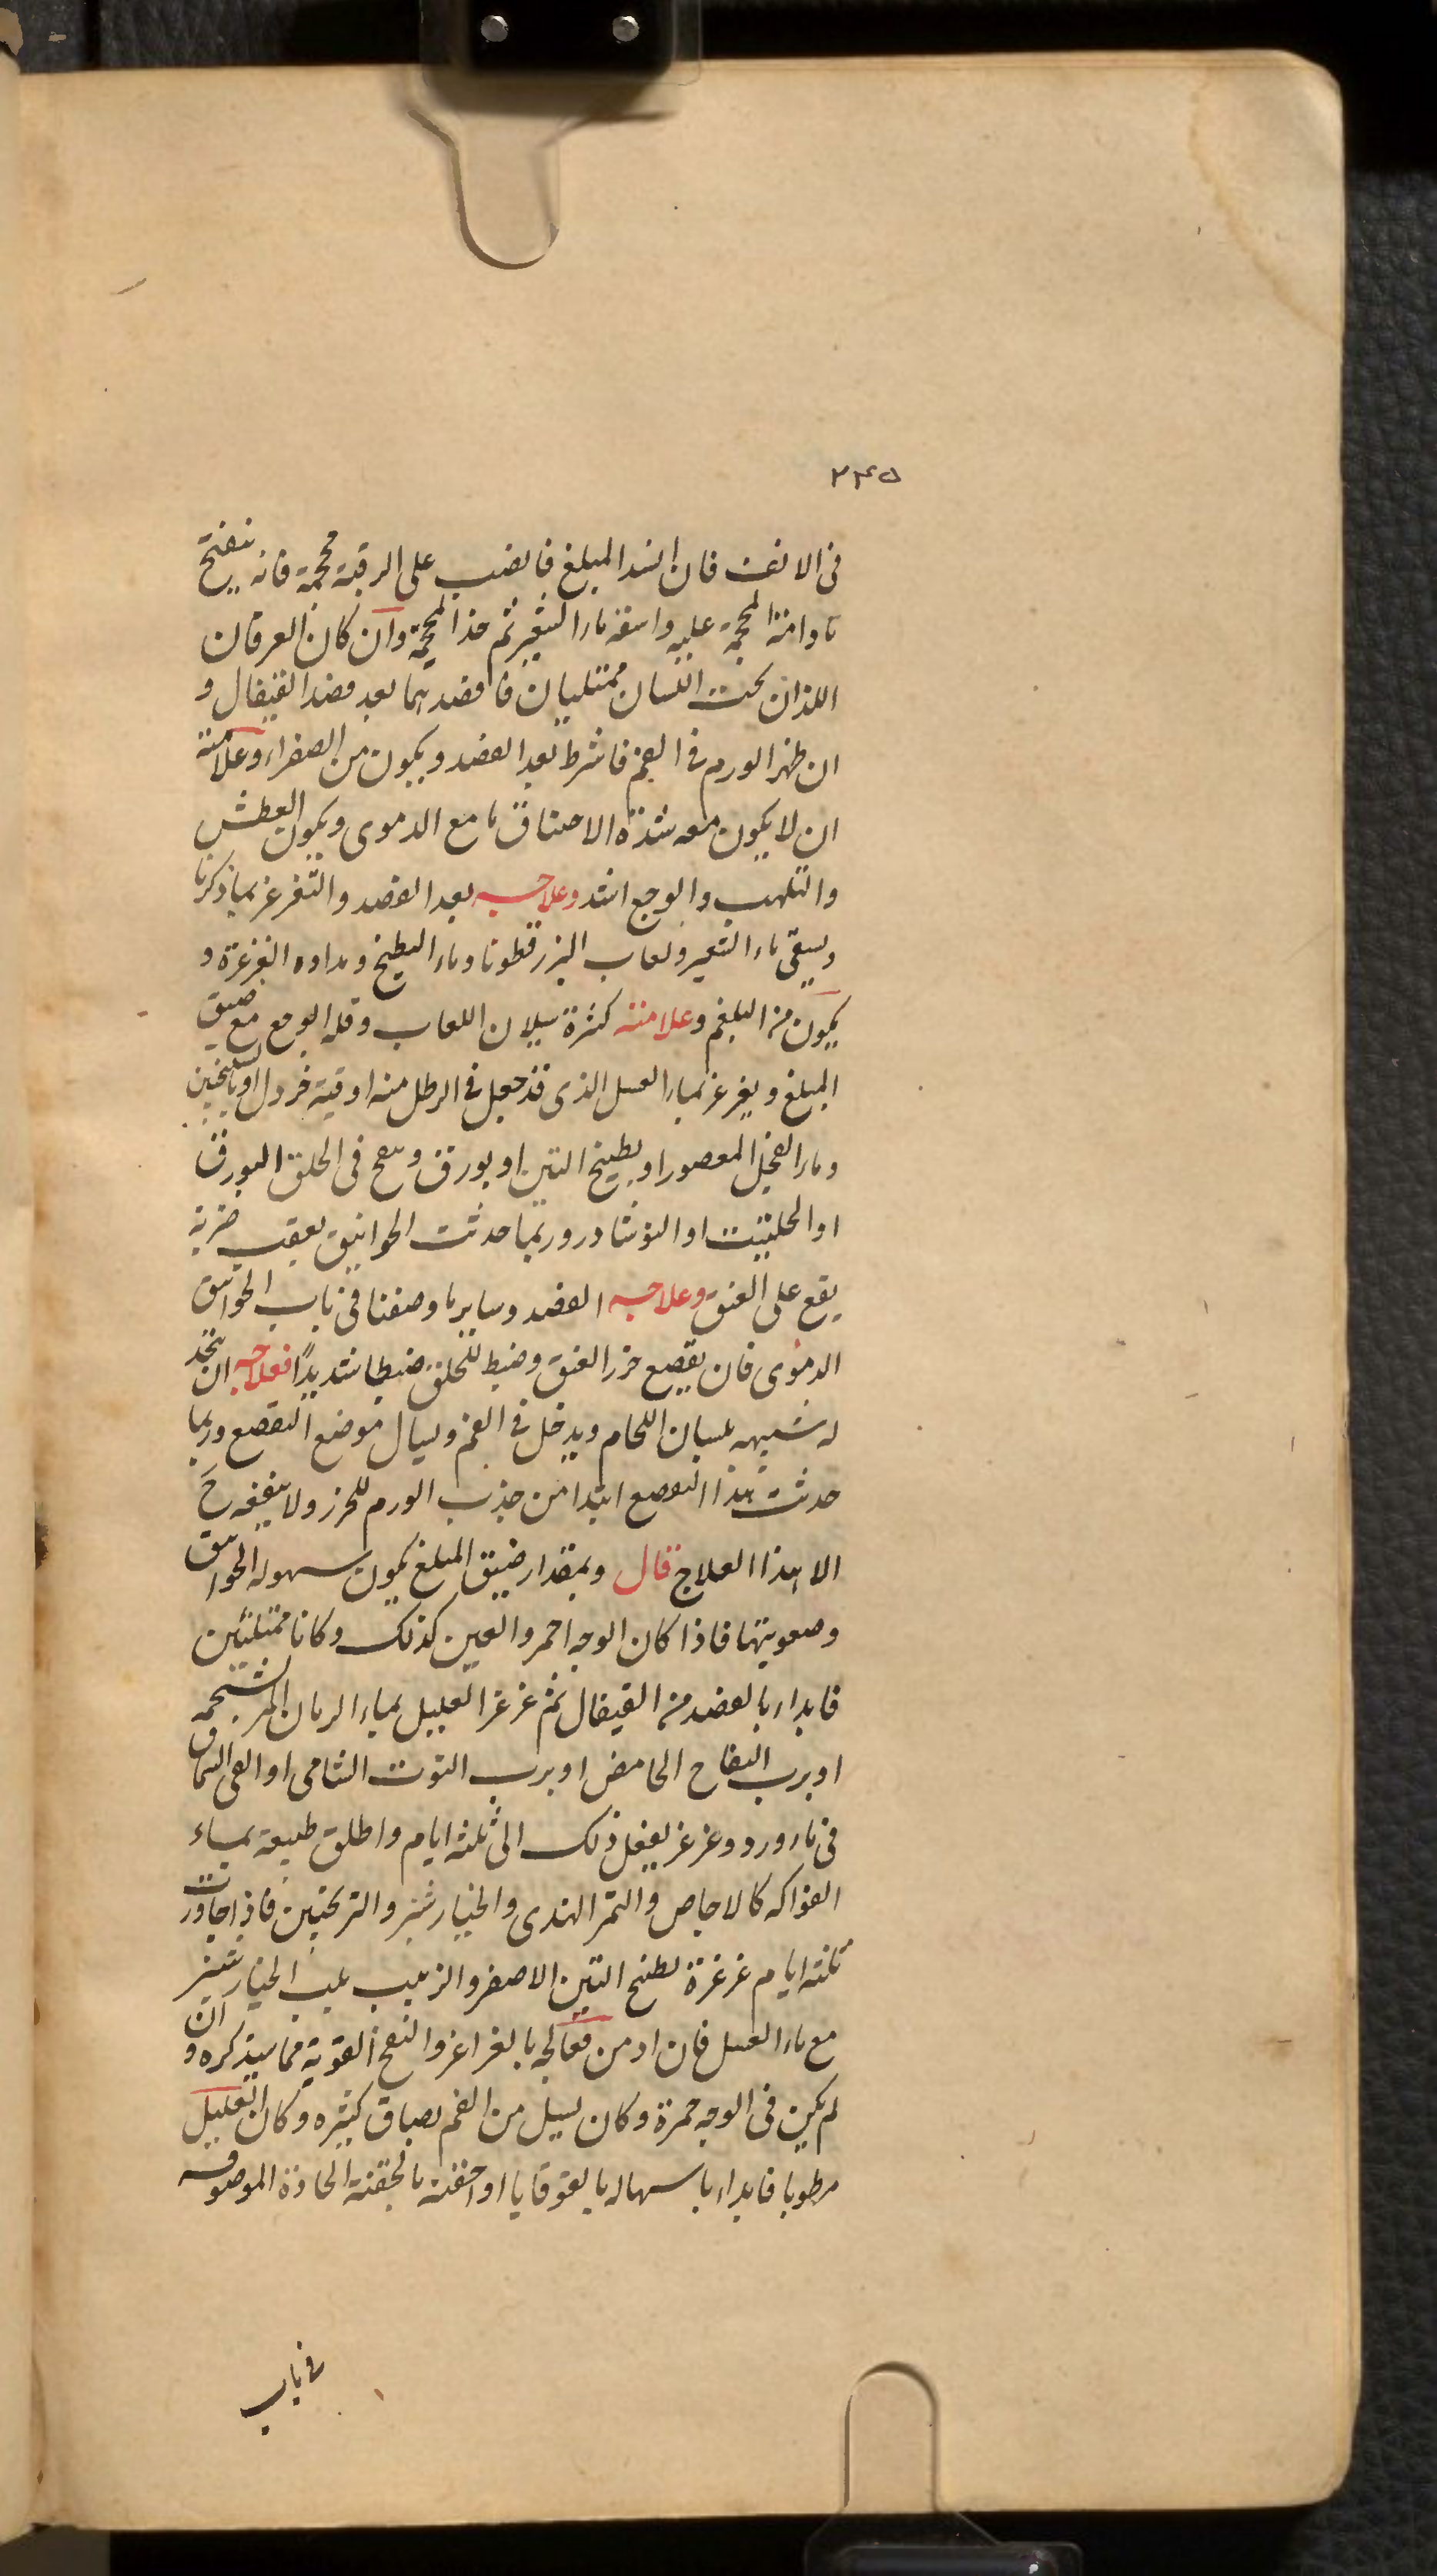 ٢٣٥
فى الانف فان انسد المبلغ فانصب على الرقبة محجمة فانه ينفتح
ما دامت المحجمة عليه واسقه ماء الشعير ثم خذ المحجمة وان كان العرقان
اللذان تحت اللسان ممتليان فافصدهما بعد فصد القيفال و
ان ظهر الورم فى الفم فاشرط بعد الفصد ويكون من الصفراء وعلامته
ان لا يكون معه شدة الاختناق ما مع الدموى ويكون العطش
والتلهب والوجع اشد وعلاجه بعد الفصد والتغرغر بما ذكرنا
ويسقى ماء الشعير ولعاب البزرقطونا وماء البطيخ ومداومه الغرغرة و
يكون من البلغم وعلامته كثرة سيلان اللعاب وقله الوجع مع ضيق
المبلغ ويغرغر بماء العسل الذى قد جعل فى الرطل منه اوقية خردل او بالسكنجبين
وماء الفجل المعصور او بطبيخ التين او بورق وينفخ فى الحلق البورق
او الحلتيت او النوشادر وربما حدثت الخوانيق بعقب ضربة
يقع على العنق وعلاجه الفصد وساير ما وصفنا فى باب الخوانيق
الدموى فان تقصع خرز العنق وضبط للحلق ضبطا شديدًا فعلاجه ان يتخذ
له شبيهه بلسان اللحام ويدخل فى الفم ويسال موضع التقصع وربما
حدثت هذا التقصع ابتدا من جذب الورم للخرز ولا ينفعه ح
الا هذا العلاج قال وبمقدار ضيق المبلغ يكون سهوله الخوانيق
وصعوبتها فاذا كان الوجه احمر والعين كذلك وكانا ممتلئين
فابداء بالفصد من القيفال ثم غرغر العليل بماء الرمان المر بشحمه
او برب التفاح الحامض او برب التوت الشامى او القى السماق
فى ماء ورد وغرغر يفعل ذلك الى ثلثه ايام واطلق طبيعة بماء
الفواكه كالاجاص والتمر الهندى والخيارشنبر والترنجبين فاذا جاوزت
ثلثه ايام غرغرة بطبخ التين الاصفر والزبيب بلب الخيارشنبر
مع ماء العسل فان ازمن فعالجه بالغراغر والنفخ القوية مما سيذكره و ان
لم يكن فى الوجه حمرة وكان يسيل من الفم بصاق كثيره وكان العليل
مرطوبا فابداء باسهاله بالقوقايا او احقنه بالحقنة الحادة الموصوفه
فى باب